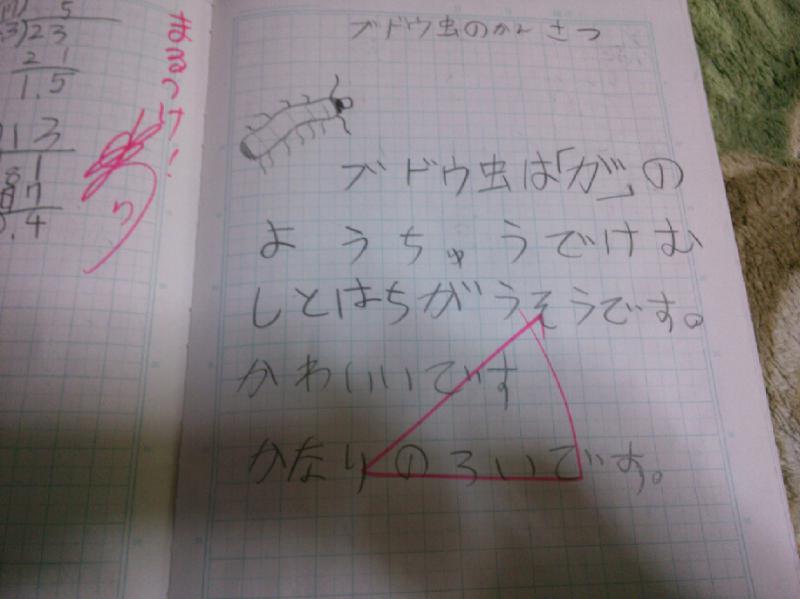 ブドウ虫のかんさつ
ブドウ虫は「が」の
ようちゅうでけむ
しとはちがうそうです。
かわいいです
かなりのろいです。
まるつけ!
5
3)23
21
1.5
13
1
8
7
.4